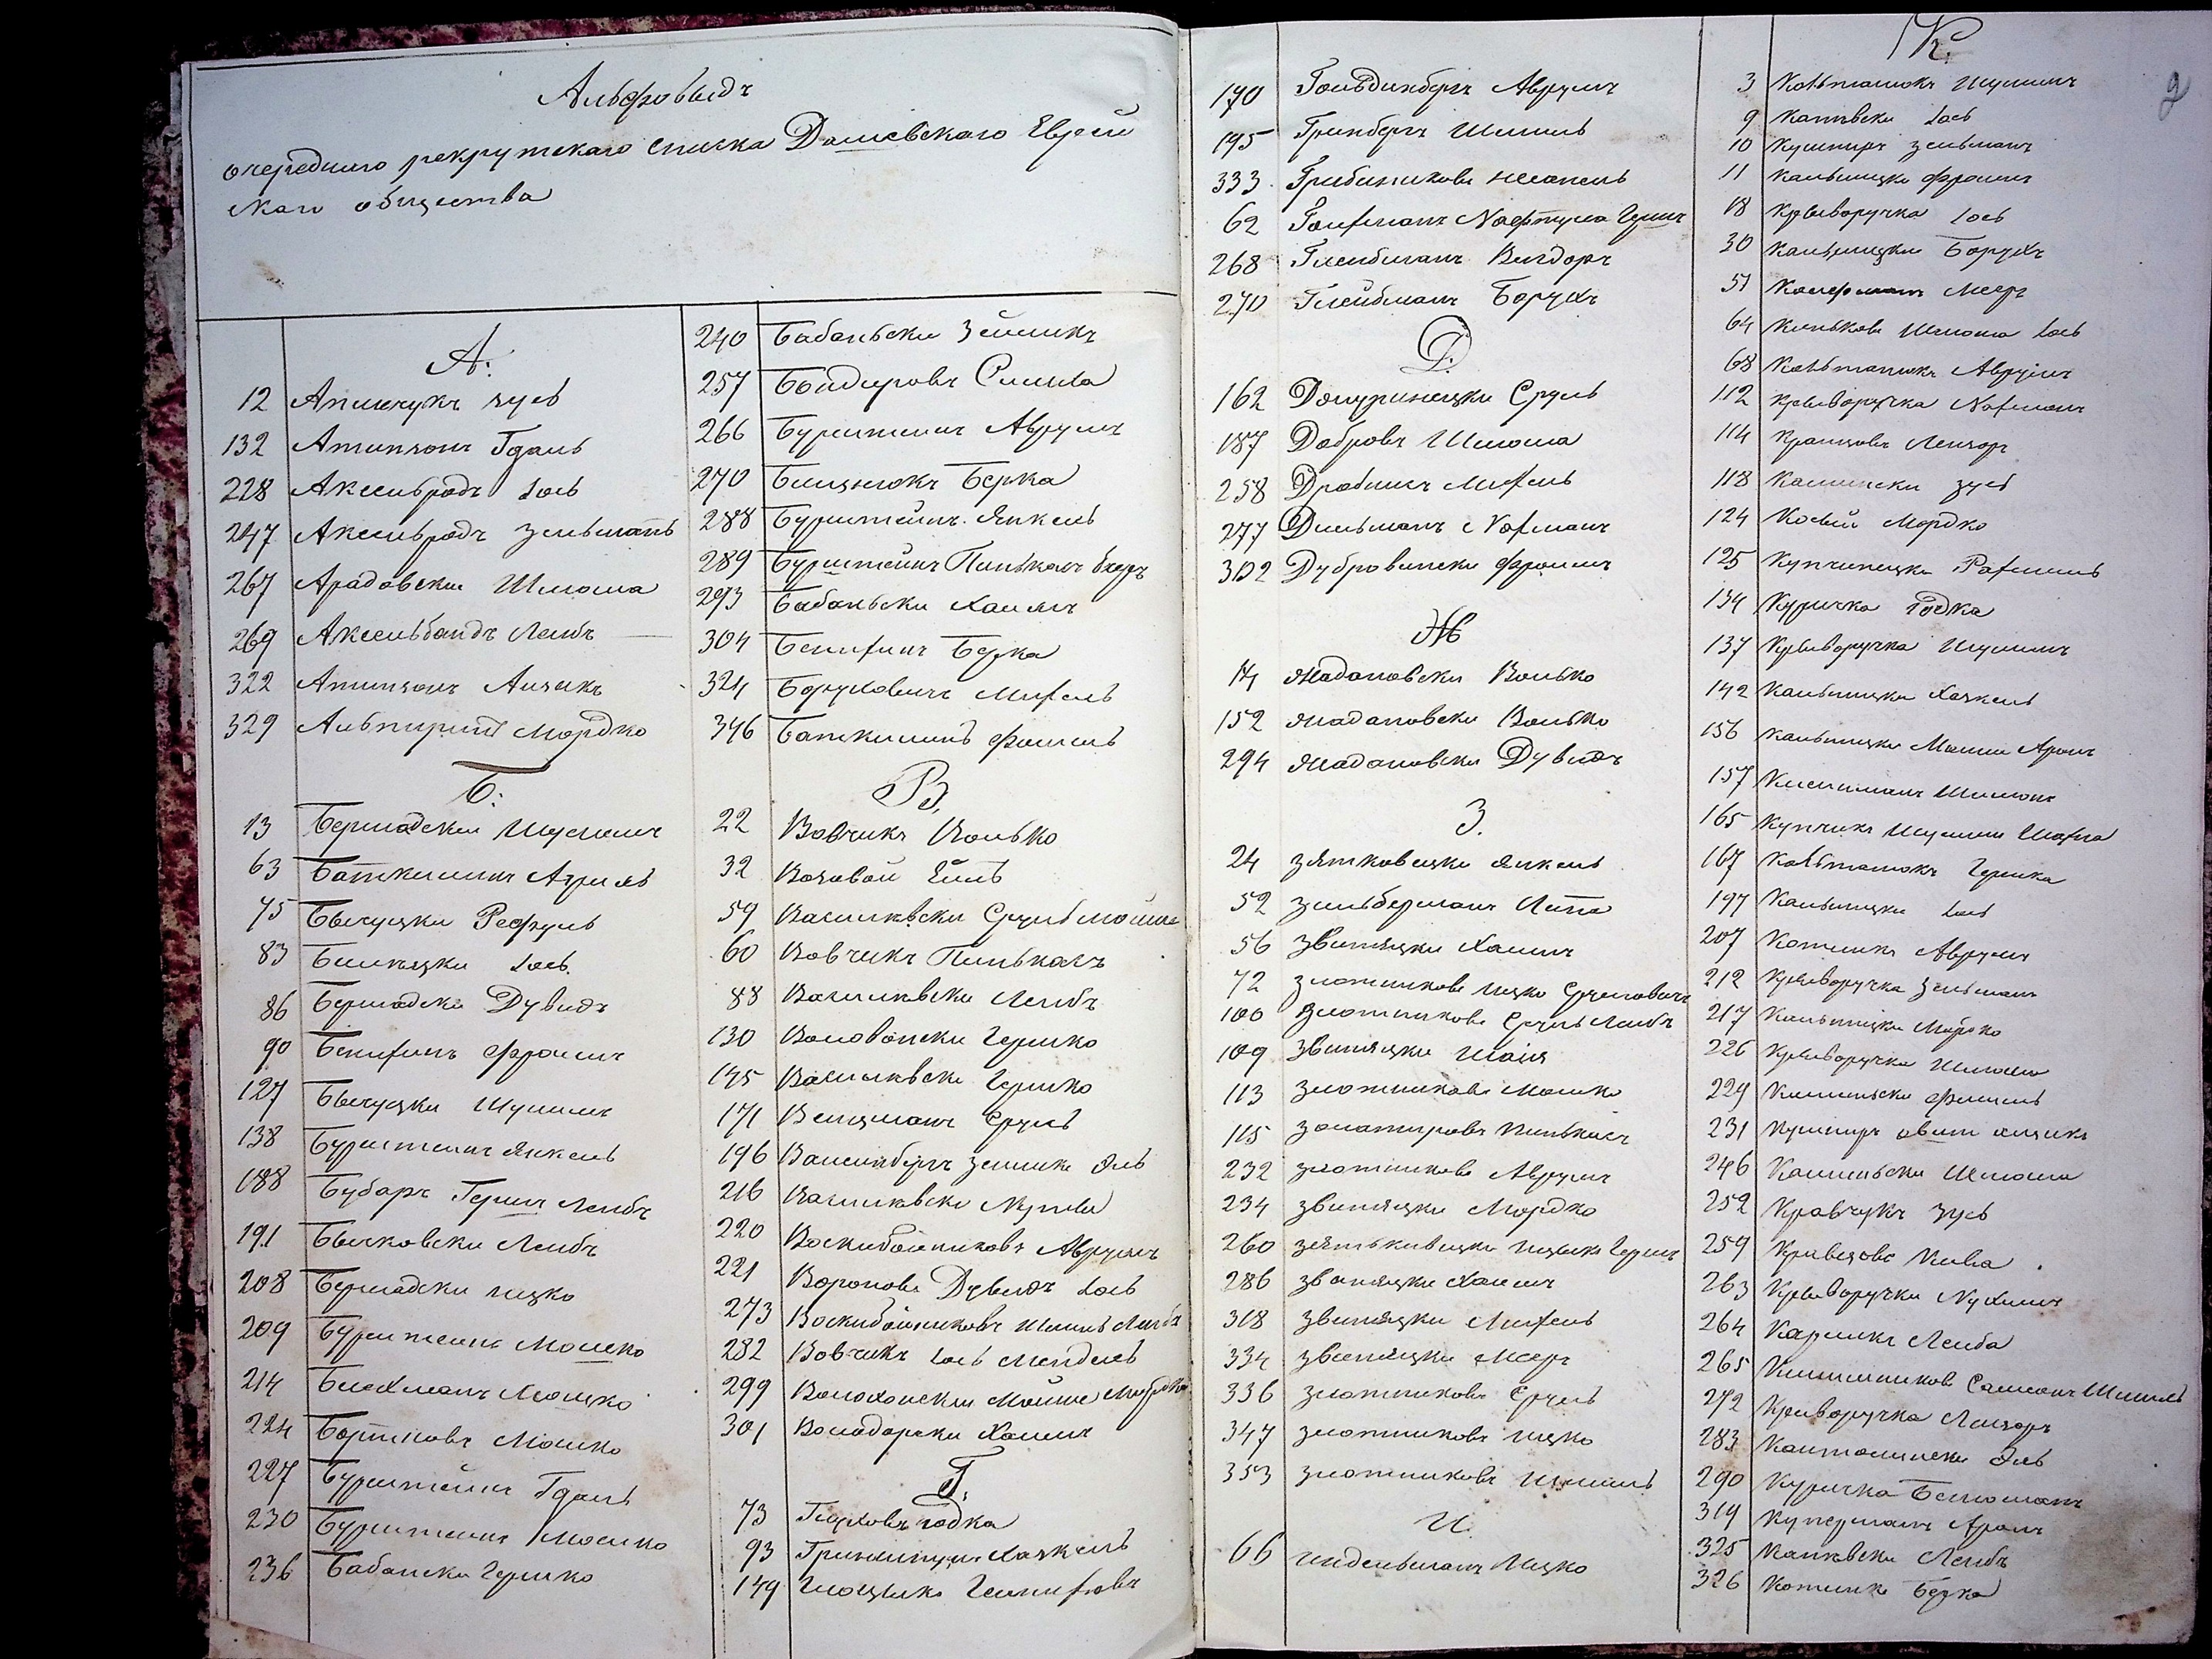 Альфовытъ
очереднаго рекрутскаго списка Дашевскаго Еврей
скаго общества
А:
12 Апшчукъ Зусь
132 Атинзонъ Гдаль
228 Аксельродъ Іось
247 Аксельродъ Зельманъ
267 Арадовски Шлиома
269 Аксельбандъ Лейбъ
322 Атинзонъ Айзыкъ
329 Альпиринъ Мордко
Б:
13 Бершадски Шулимъ
63 Баткилинъ Азриль
75 Бычуцки Рефуль
83 Іось
86 Бершадски Дувидъ
90 Бенифинъ Фроимъ
127 Бычуцки Шулимъ
138 Бурштеинъ Янкель
188 Бубаръ Гершъ Лейбъ
191 Бычковски Лейбъ
208 Бершадски Ицко
209 Бурштеинъ Мошко
214 Блехманъ
224 Бортновъ Мошко
227 Бурштейнъ Гдаль
230 Бурштеинъ Мошко
236 Бабански Гершко
240 Бабаньски Зейликъ
257 Бондировъ Симха
266 Бурштеинъ Аврумъ
270 Берка
288 Бурштейнъ Янкель
289 Бурштейнъ Пинькасъ
293 Бабаньски Хаимъ
304 Бенифинъ Берка
324 Боруховичъ Михель
346 Баткилинъ Фишель
В.
22 Вовчикъ Волько
32 Возовой
59 Василивски Сруль Мойше
60 Вовчикъ Пинькасъ
88 Василивски Лейбъ
130 Воловонски Гершко
145 Василивски Гершко
171 Вейцманъ Сруль
196 Ваисинбергъ Зейлик Эль
216 Василивски
220 Воскибойниковъ Аврумъ
221 Вороновъ Дувидъ Іось
273 Воскибойниковъ Шмиль Лейбъ
282 Вовчикъ Іось Мендель
299 Волохонски Мойше Мордко
301 Володарски Хаимъ
Г.
73 Глуховъ Іодка
93 Хаскель
149
170 Гольдинбергъ Аврумъ
195 Гринбергъ Шмиль
333 Грибиниковъ
62 Гоифманъ Нафтула Гершъ
268 Глейбманъ Вигдоръ
270 Глейбманъ Борухъ
Д.
162 Сруль
187 Добровъ Шлиома
258 Михель
277 Дильманъ Нахманъ
302 Дубровински Фроимъ
Ж
14 Жадановски Волько
152 Жадановски Волько
294 Жадановски Дувидъ
З.
24 Зятковецки Янкель
52 Зильберманъ Липа
56 Звиняцки Хаимъ
72 Злотниковъ Ицко Сруловичъ
100 Злотниковъ Сруль Лейбъ
109 Звиняцки Шаія
113 Злотниковъ Мошко
115 Золотировъ Пинькасъ
232 Злотниковъ Аврумъ
234 Звиняцки Мордко
260 Зятькивицки Ицько Гершъ
286 Звиняцки Хаимъ
318 Звиняцки Михель
334 Звиняцки Мееръ
336 Злотниковъ Сруль
347 Злотниковъ Ицко
353 Злотниковъ Шмиль
И.
66 Индельманъ Ицко
К.
3 Ковтанюкъ Шулимъ
9 Капивски Іось
10 Кушниръ Зельманъ
11 Кальницки Фроимъ
18 Криворучка Іось
30 Кальницки Борухъ
51 Коифманъ Мееръ
64 Киньковъ Шлиома Іось
68 Ковтанюкъ Аврумъ
112 Криворучка Нахманъ
114 Кранцовъ Лейзоръ
118 Камински Зусь
124 Косый Мордко
125 Купчинецки Рахмиль
134 Куричка Іодка
137 Криворучка Шулимъ
142 Кальницки Хаскель
156 Кальницки Мошин Аронъ
157 Шимонъ
165 Купчикъ Шулим Шахна
167 Ковтанюкъ Гершка
197 Кальницки Іось
207 Котликъ Аврумъ
212 Криворучка Зельманъ
217 Кальницки Мордко
226 Криворучка Шлиома
229 Каминьски Фишель
231 Кушниръ
246 Каминьски Шлиома
252 Кравчукъ Зусь
259 Кравцовъ Кива
263 Криворучка Нухимъ
264 Карликъ Лейба
265 Шмиль
272 Криворучка Лейзоръ
283 Эль
290 Куричка
319 Куперманъ Аронъ
325 Капивски Лейбъ
326 Котликъ Берка
2